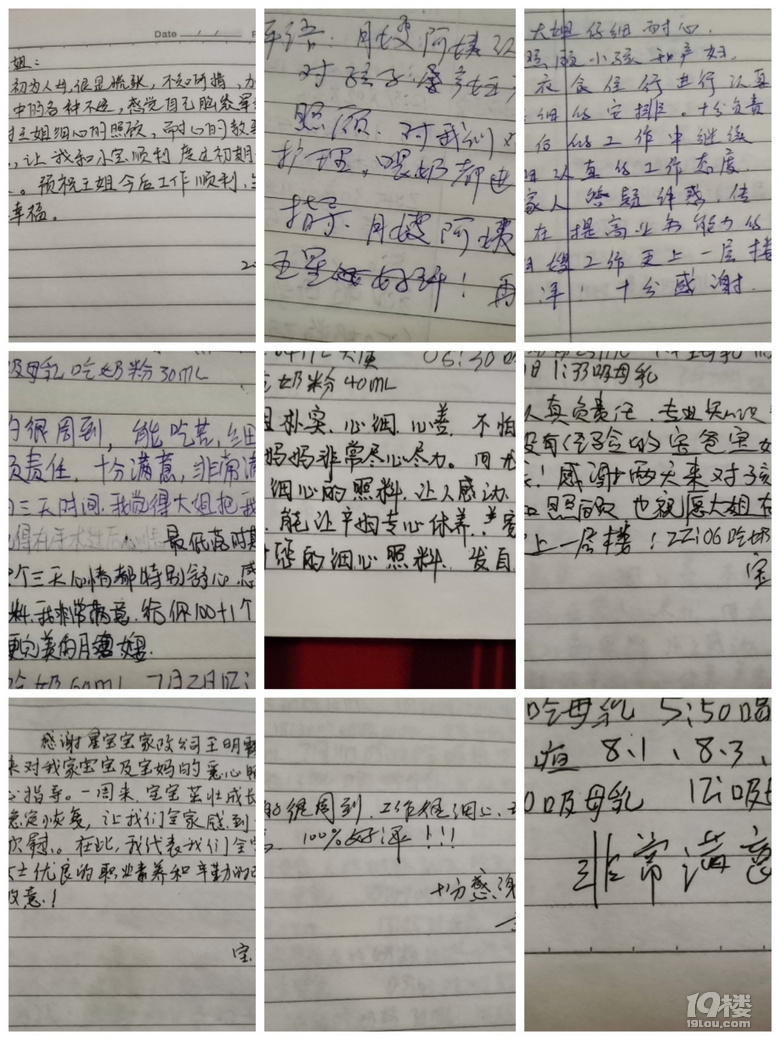 Date
姐:
初为人母,很是慌张,不知所措,
中的各种不适,感觉自己脑袋
王姐细心的照顾,耐心的教
,让我和小宝顺利度过初期
。预祝王姐今后工作顺利,
幸福。
评语:月嫂阿姨
对孩子
照顾.对我们
护理,喂奶都
指导.月嫂阿姨
五星好评!再
大姐仔细耐心.
照顾小孩和产妇.
衣食住行进行认真
细的安排。十分负责
后的工作中继续
认真的工作态度.
家人答疑解惑.
在提高业务能力的
嫂工作更上一层楼
洋!十分感谢.
吸母乳吃奶粉30ML
的很周到,能吃苦,细
负责任,十分满意,非常满
三天时间.我觉得大姐把我
最低落时期
个三天心情都特别舒心.感
料.我非常满意.给你100+1个
更完美的月嫂.
吃奶60ml 7月2日
06:30
吃奶粉40ML
朴实.心细.心善.不怕
妈妈非常尽心尽力。
细心的照料.让人感动.
.能让产妇专心休养.
的细心照料.发自
1:35吸母乳
认真负责任.专业知识
没有经验的宝爸宝
!感谢两天来对孩
照顾 也祝愿大姐
上一层楼!22:06吃奶
宝
感谢星宝宝家政公司王明
来对我家宝宝及宝妈的悉心照
心指导。一周来,宝宝茁壮成长
稳定恢复,让我们全家感到
欣慰。在此,我代表我们全
女士优良的职业素养和辛勤的
敬意!
宝
的很周到.工作很细心.
100%好评!!!
十分感谢
吃母乳 5:50喝
疸 8.1、8.3、
吸母乳 12:吸
非常满意
19楼
19lou.com